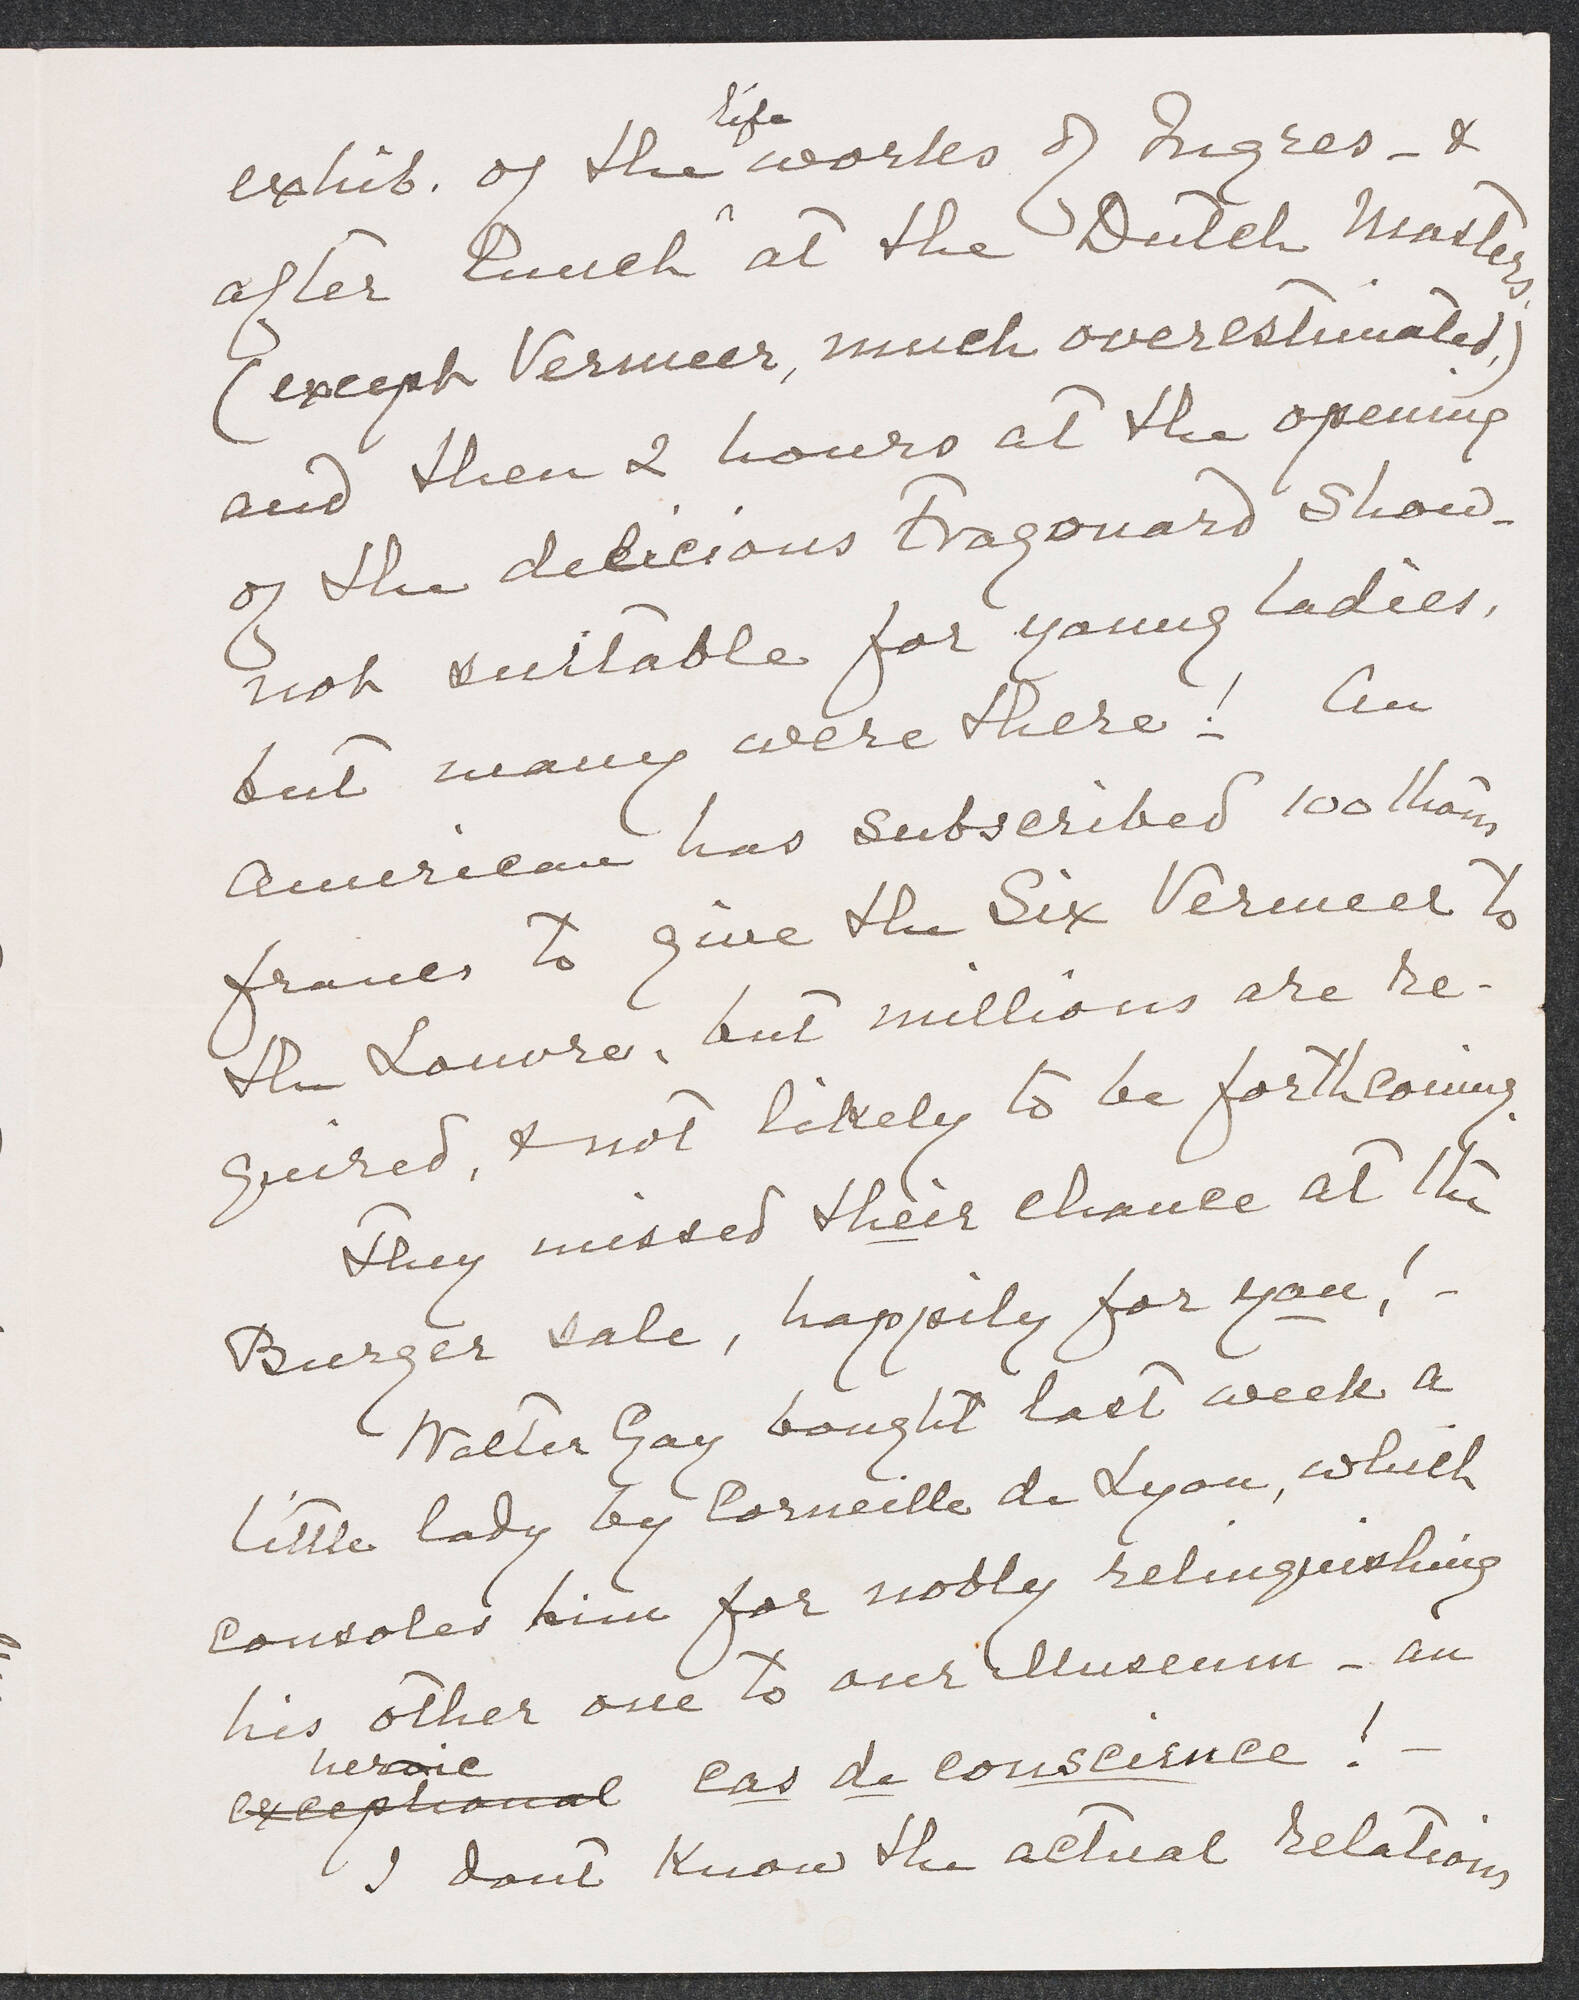 exhib. of the ^life works of Ingres - &
after lunch at the Dutch Masters,
(except Vermeer, much overestimated,)
and then 2 hours at the opening
of the delicious Fragonard show -
not suitable for young ladies,
but many were there! An
American has subscribed 100 thous
francs to give the Six Vermeer to
the Louvre, but millions are re-
quired, & not likely to be forthcoming.
They missed their chance at the
Burger sale, happily for you! -
Walter Gay bought last week a
little lady by Corneille de Lyon, which
consoles him for nobly relinquishing
his other one to our Museum - an
heroic
exceptional cas de conscience! -
I dont know the actual relations